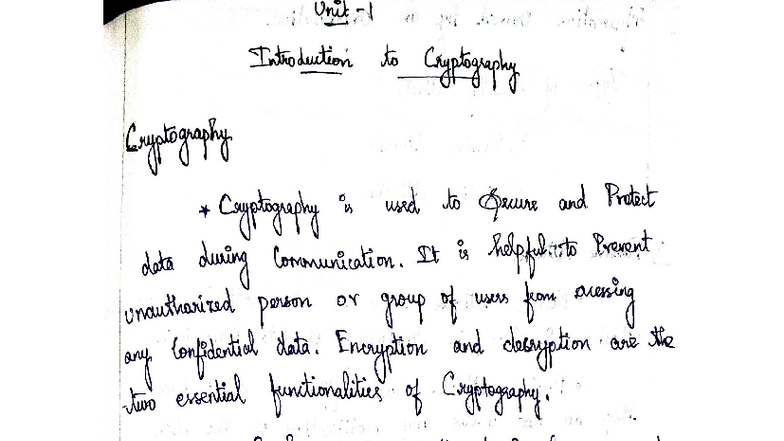 Unit - 1
Introduction to Cryptography
Cryptography
* Cryptography is used to Secure and Protect
data during Communication. It is helpful to Prevent
unautharized person or group of users from acessing
any Confidential data. Encryption and decryption are the
two essential functionalities of Cryptography.